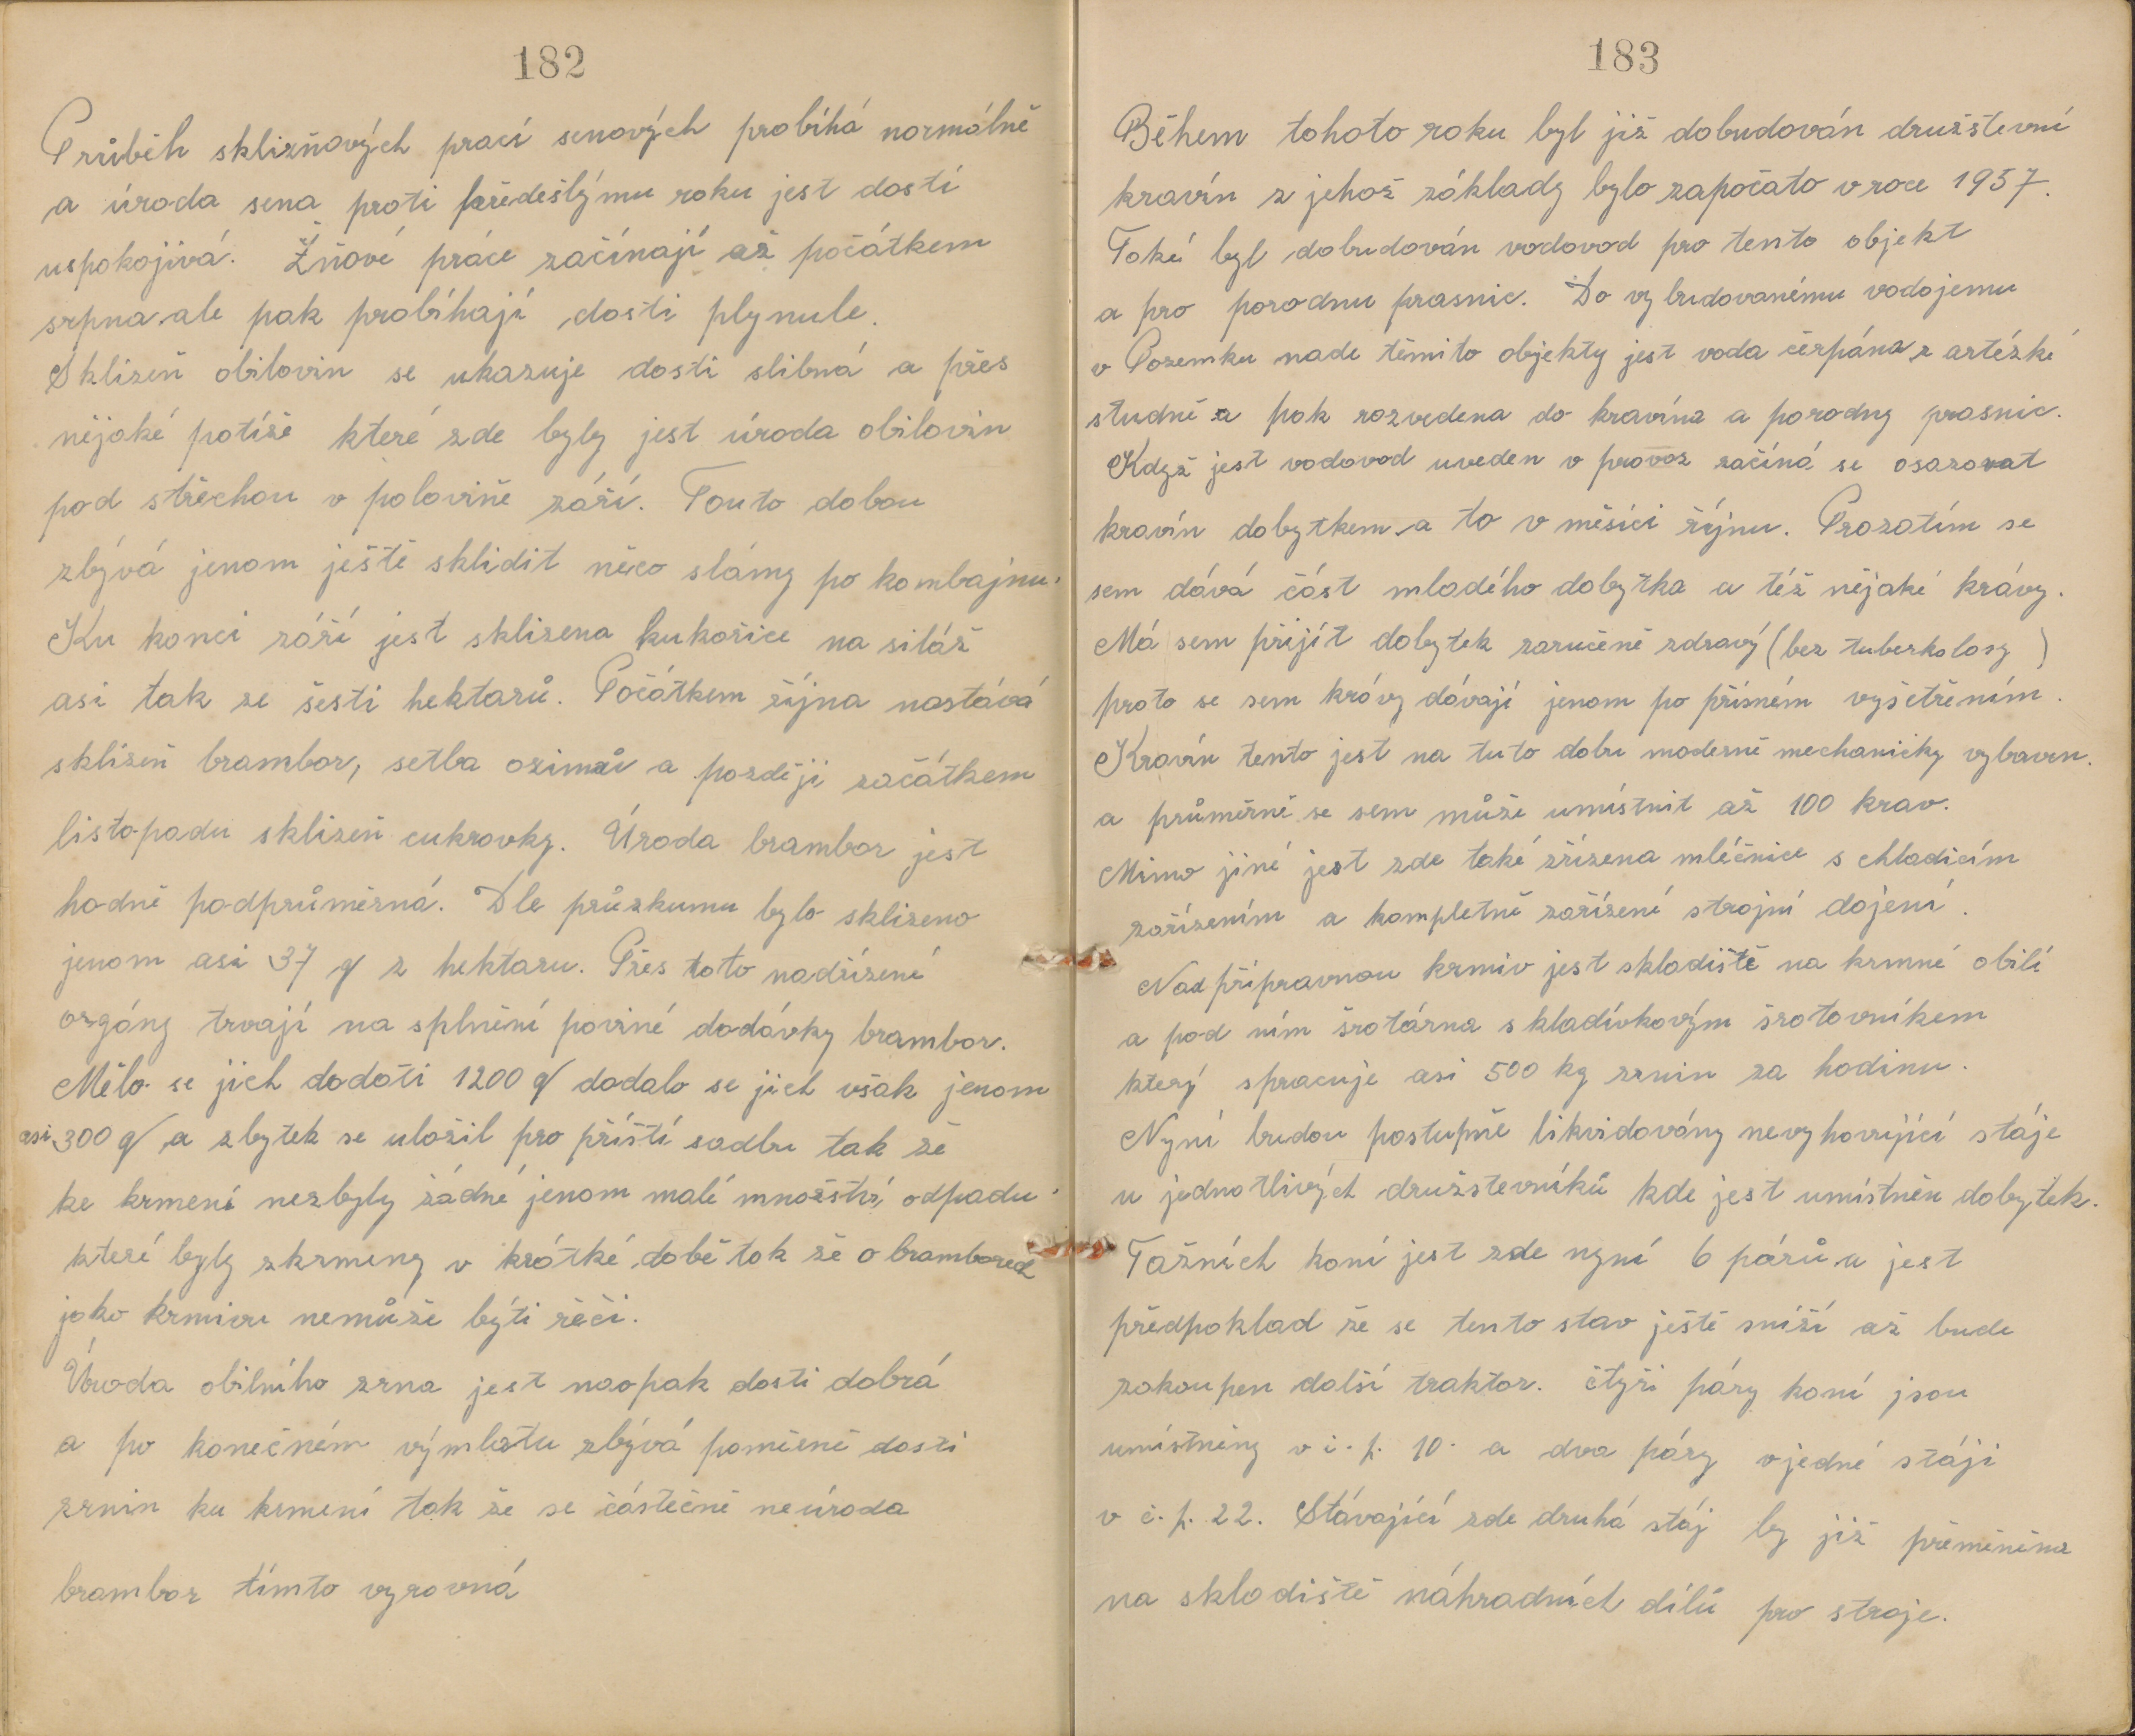 182
Průběh sklizňových prací senových probíhá normálně
a úroda sena proti předešlýmu roku jest dosti
uspokojivá. Žňové práce začínají až počátkem
srpna ale pak probíhají dosti plynule.
Sklizeň obilovin se ukazuje dosti slibná a přes
nějaké potíže které zde byly jest úroda obilovin
pod střechou v polovině září. Touto dobou
zbývá jenom ještě sklidit něco slámy po kombajnu.
Ku konci září jest sklizena kukořice na siláž
asi tak ze šesti hektarů. Počátkem října nastává
sklizeň brambor, setba ozimů a později začátkem
listopadu sklizeň cukrovky. Úroda brambor jest
hodně podprůměrná. Dle průzkumu bylo sklizeno
jenom asi 37 q z hektaru. Přes toto nadřízené
orgány trvají na splnění poviné dodávky brambor.
Mělo se jich dodati 1200 q dodalo se jich však jenom
asi 300 q a zbytek se uložil pro příští sadbu tak že
ke krmení nezbyly žádné jenom malé množství odpadu
které byly zkrmeny v krátké době tak že o bramborech
jako krmivu nemůže býti řeči.
Úroda obilního zrna jest naopak dosti dobrá
a po konečném výmlatu zbývá poměrně dosti
zrnin ku krmení tak že se částečně neúroda
brambor tímto vyrovná
183
Během tohoto roku byl již dobudován družštevní
kravín z jehož základy bylo započato v roce 1957.
Také byl dobudován vodovod pro tento objekt
a pro porodnu prasnic. Do vybudovanému vodojemu
v Pozemku nade těmito objekty jest voda čerpána z artézké
studně a pak rozvedena do kravína a porodny prasnic.
Když jest vodovod uveden v provoz začíná se osazovat
kravín dobytkem a to v měsíci říjnu. Prozatím se
sem dává část mladého dobytka a též nějaké krávy.
Má sem přijít dobytek zaručeně zdravý (bez tuberkolosy)
proto se sem krávy dávají jenom po přísném vyšetřením.
Kravín tento jest na tuto dobu moderně mechanicky vybaven.
a průměrně se sem může umístnit až 100 krav.
Mimo jiné jest zde také zřízena mléčnice s chladicím
zařízením a kompletně zařízené strojní dojení.
Nad přípravnou krmiv jest skladiště na krmné obilí
a pod ním šrotárna s kladívkovým šrotovníkem
který spracuje asi 500 kg zrnin za hodinu.
Nyní budou postupně likvidovány nevyhovující stáje
u jednotlivých družstevníků kde jest umístněn dobytek.
Tažních koní jest zde nyní 6 párů a jest
předpoklad že se tento stav ještě sníží až bude
zakoupen další traktor. čtyři páry koní jsou
umístněny v č. p. 10. a dva páry v jedné stáji
v č. p. 22. Stávající zde druhá stáj by již přeměněna
na skladiště náhradních dílů pro stroje.